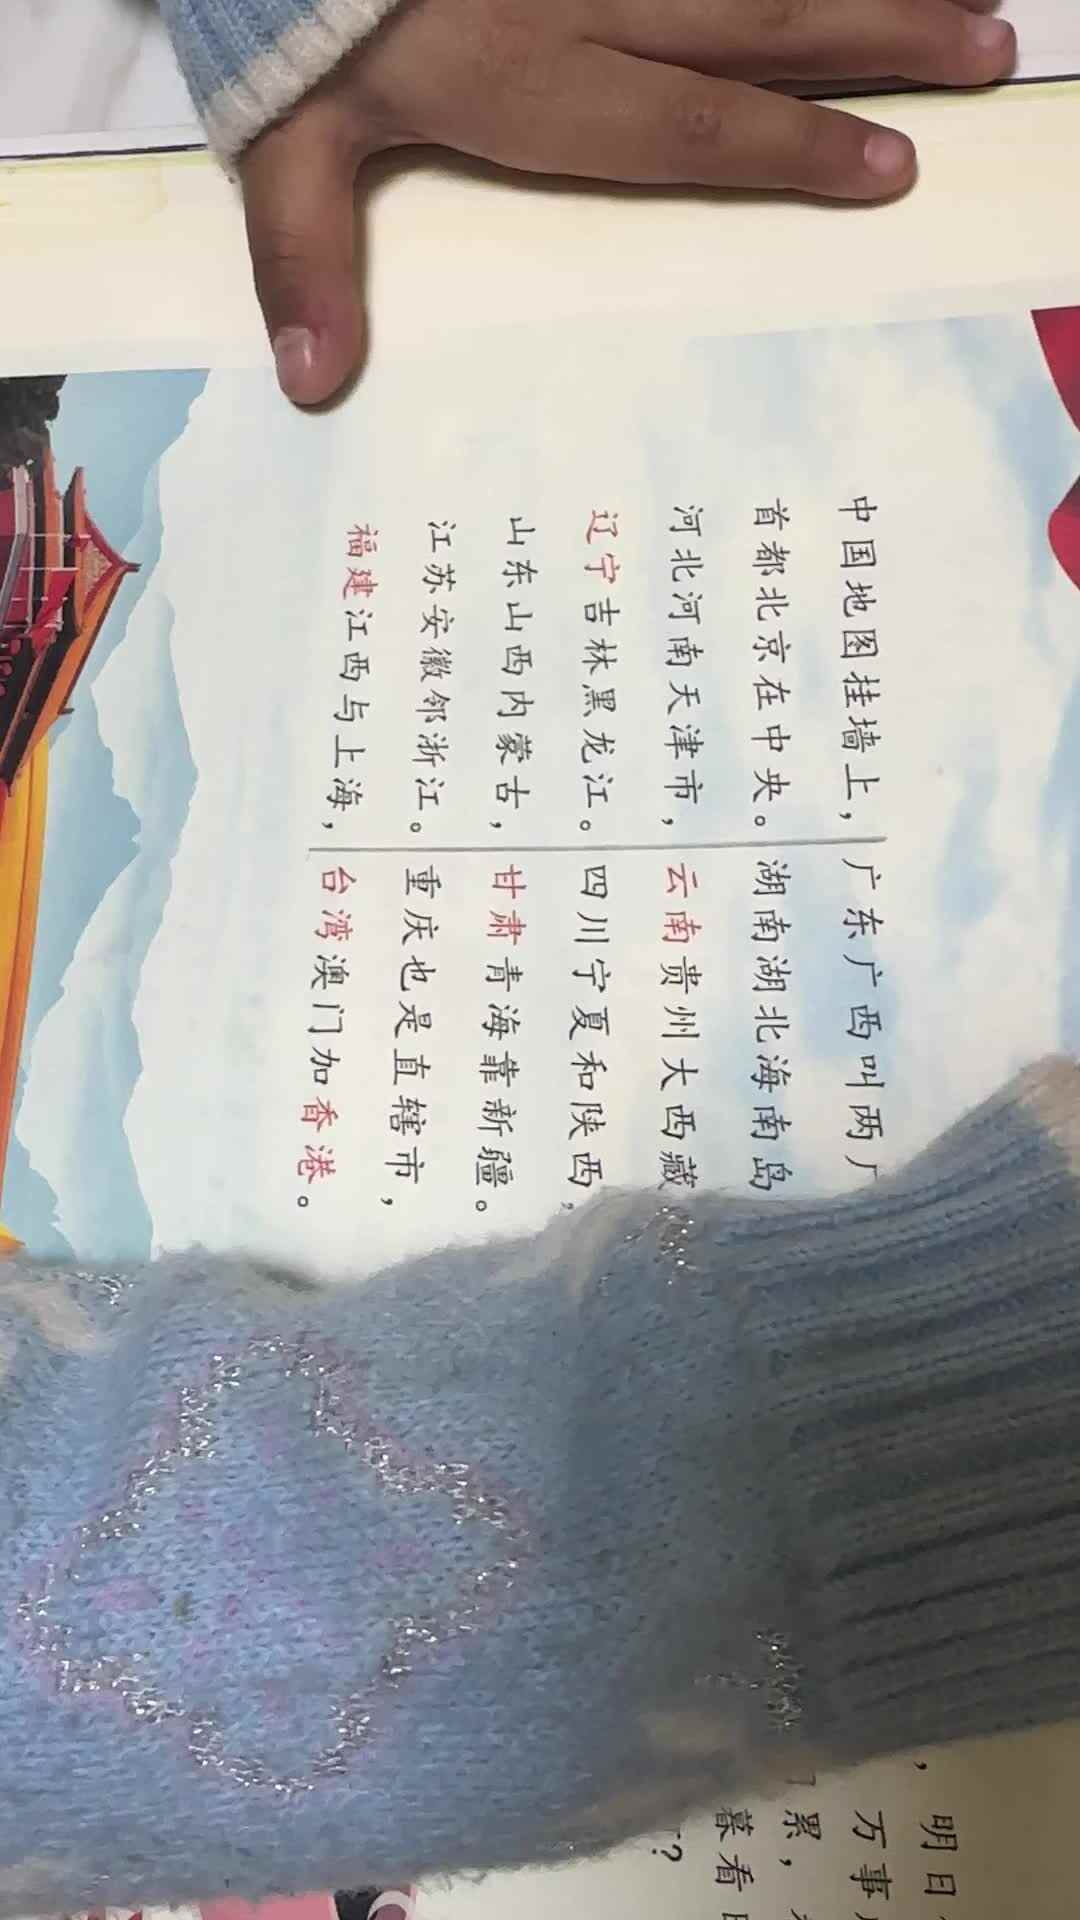 中国地图挂墙上，
首都北京在中央。
河北河南天津市，
辽宁吉林黑龙江。
山东山西内蒙古，
江苏安徽邻浙江。
福建江西与上海，
广东广西叫两广
湖南湖北海南岛
云南贵州大西藏
四川宁夏和陕西，
甘肃青海靠新疆。
重庆也是直辖市，
台湾澳门加香港。
，明日
万事
累，
暮看
？